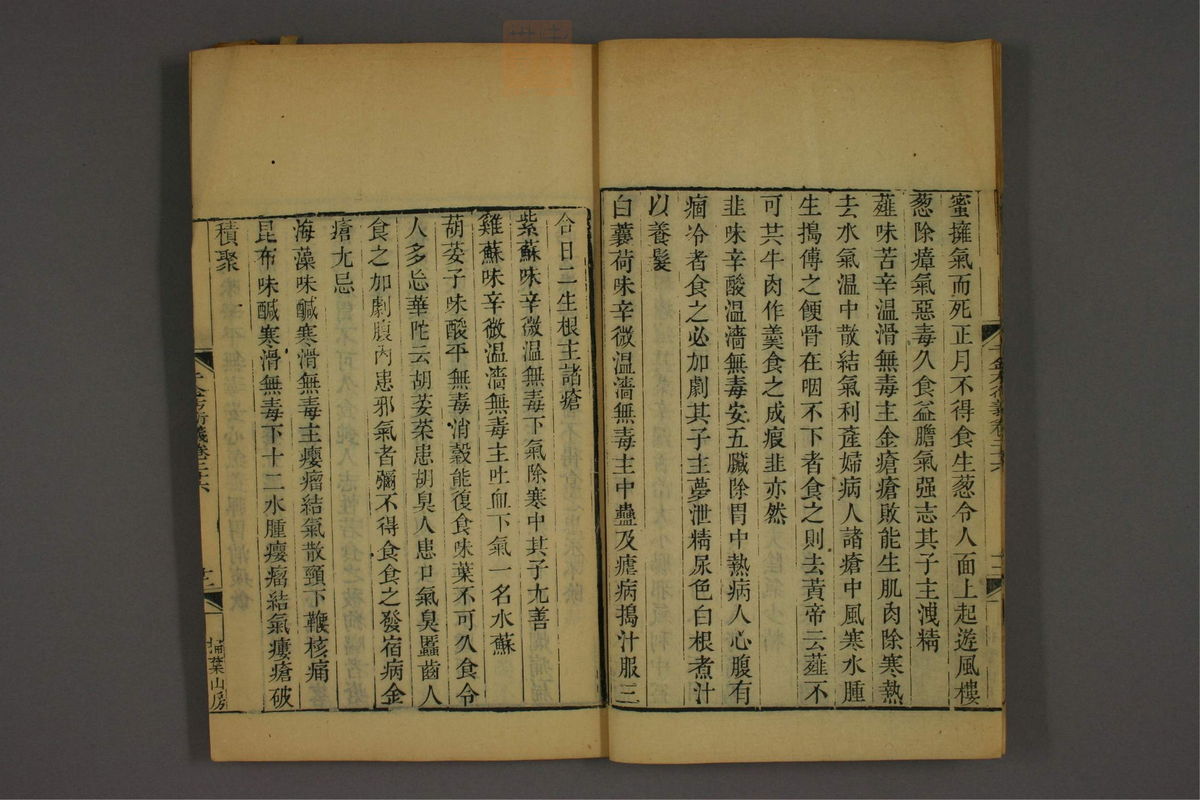 蜜擁氣而死正月不得食生葱令人面上起遊風樓
葱除瘴氣惡毒久食益膽氣强志其子主洩精
薤味苦辛温滑無毒主金瘡瘡敗能生肌肉除寒熱
去水氣温中散結氣利產婦病人諸瘡中風寒水腫
生搗傅之鯁骨在咽不下者食之則去黃帝云薤不
可共牛肉作羹食之成瘕韭亦然
韭味辛酸温濇無毒安五臟除胃中熱病人心腹有
痼冷者食之必加劇其子主夢泄精尿色白根煮汁
以養髮
白蘘荷味辛微温濇無毒主中蠱及瘧病搗汁服三
合日二生根主諸瘡
紫蘇味辛微温無毒下氣除寒中其子尤善
雞蘇味辛微温濇無毒主吐血下氣一名水蘇
胡荽子味酸平無毒消穀能復食味葉不可久食令
人多忘華陀云胡荽菜患胡臭人患口氣臭䘌齒人
食之加劇腹內患邪氣者彌不得食食之發宿病金
瘡尤忌
海藻味鹹寒滑無毒主癭瘤結氣散頸下鞕核痛
昆布味鹹寒滑無毒下十二水腫癭瘤結氣瘻瘡破
積聚
千金方衍義卷二十六
掃葉山房